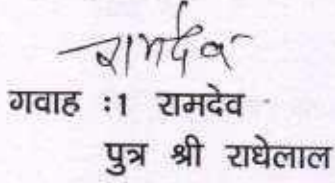 रामदेव
गवाह :1 रामदेव
पुत्र श्री राधेलाल